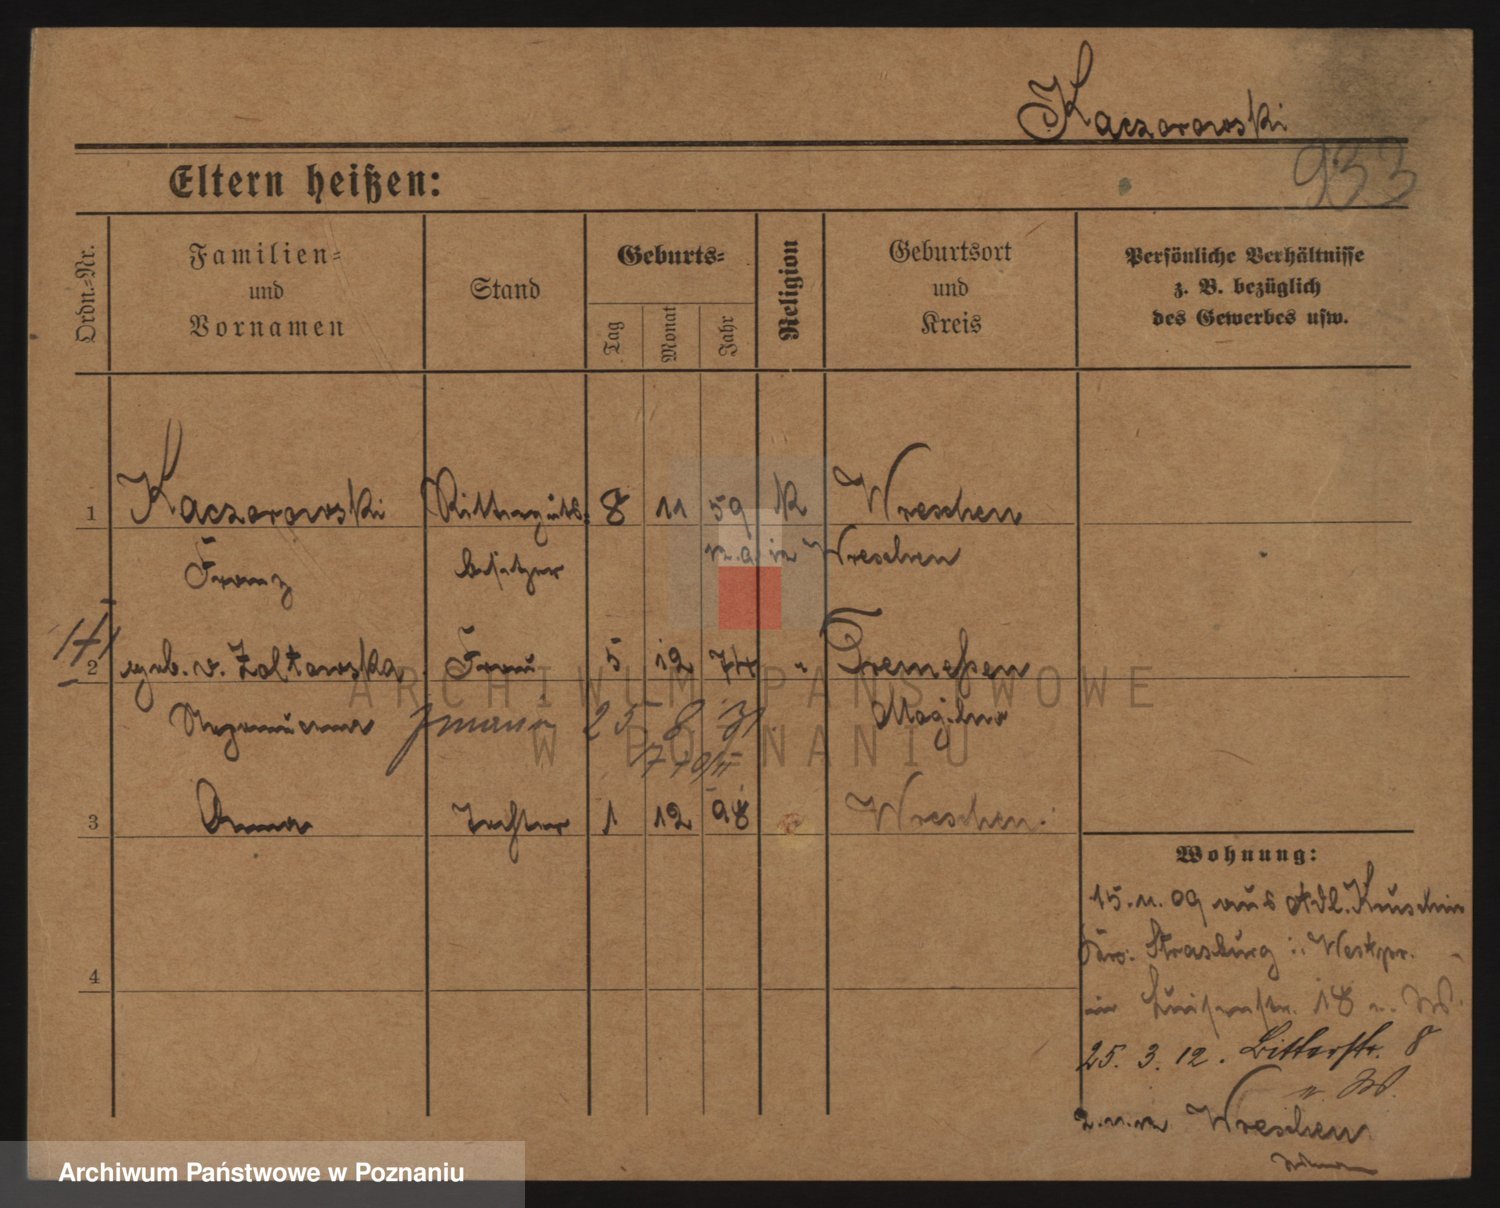 Kaczorowski
933
Eltern heißen:
Ordn.-Nr.
Familien- und Vornamen
Stand
Geburts-
Tag
Monat
Jahr
Religion
Geburtsort und Kreis
Persönliche Verhältnisse z. B. bezüglich des Gewerbes usw.
1 Kaczorowski Ritterguts- 8 11 59 K Wreschen
Franz besitzer Wreschen
2 geb. v. Zoltowska Frau 5 12 74 " Tremeßen
25 8 Mogilno
3 Anna Tochter 1 12 98 Wreschen
4
Wohnung:
15. 11. 09 aus Adl. Kruschin
Krs. Strasburg i. Westpr.
in Luisenstr. 18
25. 3. 12. Bitterstr. 8
Wreschen
ARCHIWUM PAŃSTWOWE
W POZNANIU
Archiwum Państwowe w Poznaniu